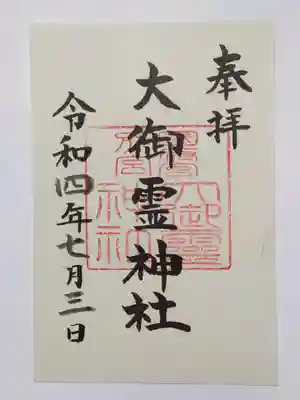 奉拝
大御霊神社
令和四年七月三日